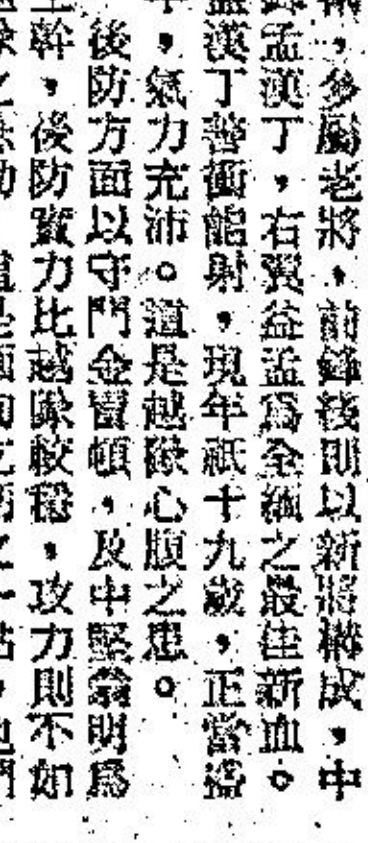 ，多屬老將，前鋒後則以新將構成，中
孟漢丁，右翼益孟爲全緬之最佳新血。
漢丁善衝能射，現年祇十九歲，正當
，氣力充沛。這是越隊心腹之患。
後防方面以守門金昔頓，及中堅翁明爲
幹，後防實力比越隊較穩，攻力則不如